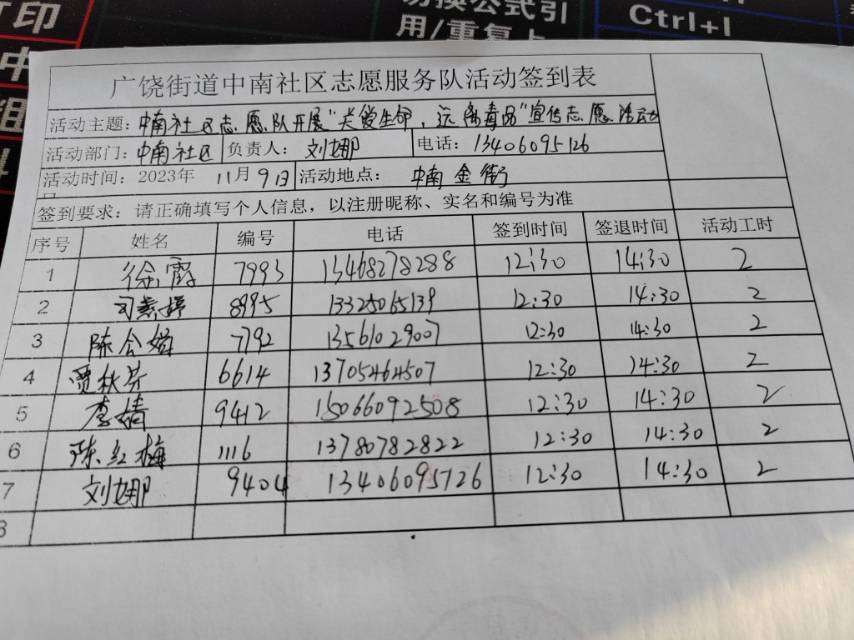 打印
切换公式引
用/重复上
Ctrl+I
中
组
广饶街道中南社区志愿服务队活动签到表
活动主题：中南社区志愿队开展"关爱生命，远离毒品"宣传志愿活动
活动部门：中南社区 负责人：刘娜 电话：13406095726
活动时间：2023年11月9日 活动地点：中南金街
签到要求：请正确填写个人信息，以注册昵称、实名和编号为准
序号 姓名 编号 电话 签到时间 签退时间 活动工时
1 徐霞 7993 13468278288 12:30 14:30 2
2 司素婷 8995 13325065139 12:30 14:30 2
3 陈会娟 7792 13561029007 12:30 14:30 2
4 贾秋芬 6614 13705464507 12:30 14:30 2
5 李婧 9412 15066092508 12:30 14:30 2
6 陈红梅 1116 13780782822 12:30 14:30 2
7 刘娜 9404 13406095726 12:30 14:30 2
8